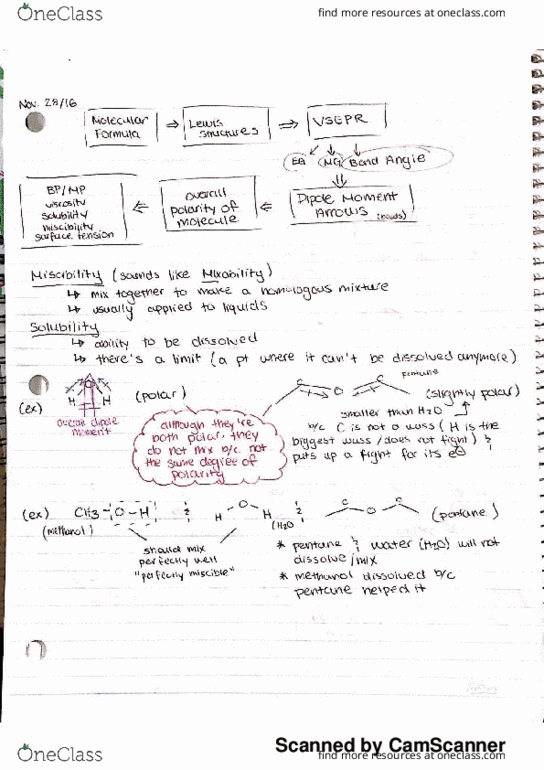 OneClass
find more resources at oneclass.com
Nov. 28/16
Molecular Formula ⇒ Lewis Structures ⇒ VSEPR
EG MG Bond Angle
BP/MP
viscosity
solubility
miscibility
surface tension
⇐ overall polarity of molecule ⇐ Dipole Moment Arrows
Miscibility (sounds like Mixability)
↳ mix together to make a homologous mixture
↳ usually applied to liquids
Solubility
↳ ability to be dissolved
↳ there's a limit (a pt where it can't be dissolved anymore)
(ex)
H H
overall dipole moment
(polar)
although they're
both polar, they
do not mix b/c not
the same degree of
polarity
C O C
pentane
(slightly polar)
smaller than H2O
b/c C is not a wuss (H is the
biggest wuss/does not fight) &
puts up a fight for its e⊖
(ex) CH3-O-H & H O H & C O C (pentane)
(methanol) (H2O
should mix
perfectly well
"perfectly miscible"
* pentane & water (H2O) will not
dissolve/mix
* methanol dissolved b/c
pentane helped it
Scanned by CamScanner
OneClass
find more resources at oneclass.com